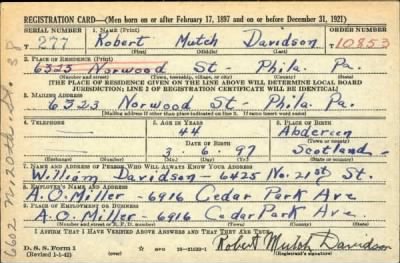 REGISTRATION CARD—(Men born on or after February 17, 1897 and on or before December 31, 1921)
SERIAL NUMBER 1. NAME (Print) ORDER NUMBER
T 277 Robert Mutch Davidson 10853
(First) (Middle) (Last)
2. PLACE OF RESIDENCE (Print)
6323 Norwood St- Phila. Pa.
(Number and street) (Town, township, village, or city) (County) (State)
[THE PLACE OF RESIDENCE GIVEN ON THE LINE ABOVE WILL DETERMINE LOCAL BOARD
JURISDICTION; LINE 2 OF REGISTRATION CERTIFICATE WILL BE IDENTICAL]
3. MAILING ADDRESS
6323 Norwood St- Phila. Pa.
[Mailing address if other than place indicated on line 2. If same insert word same]
4. TELEPHONE 5. AGE IN YEARS 6. PLACE OF BIRTH
44 Abdereen
DATE OF BIRTH (Town or county)
3. 6. 97 Scotland
(Exchange) (Number) (Mo.) (Day) (Yr.) (State or country)
7. NAME AND ADDRESS OF PERSON WHO WILL ALWAYS KNOW YOUR ADDRESS
William Davidson- 6425 No. 21st St.
8. EMPLOYER'S NAME AND ADDRESS
A. O. Miller - 6916 Cedar Park Ave
9. PLACE OF EMPLOYMENT OR BUSINESS
A. O. Miller - 6916 Cedar Park Ave.
(Number and street or R. F. D. number) (Town) (County) (State)
I AFFIRM THAT I HAVE VERIFIED ABOVE ANSWERS AND THAT THEY ARE TRUE.
D. S. S. Form 1 GPO 16-21630-1 Robert Mutch Davidson
(Revised 2-1-42) (Registrant's signature)
6602 N 20th St.